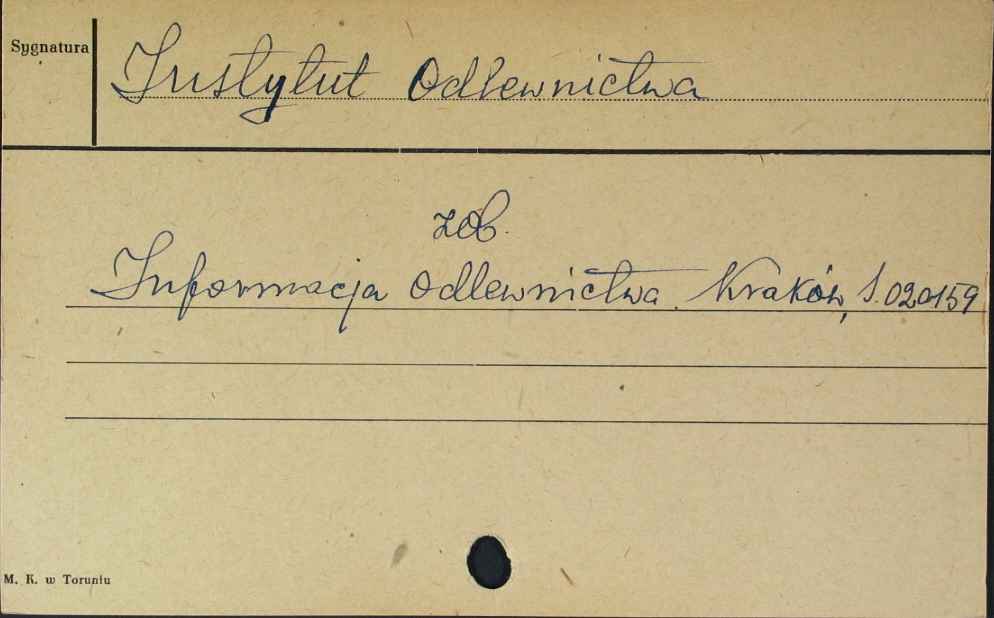 Sygnatura
Instytut Odlewnictwa
zob.
Informacja Odlewnictwa. Kraków, S.020159
M. K. w Toruniu